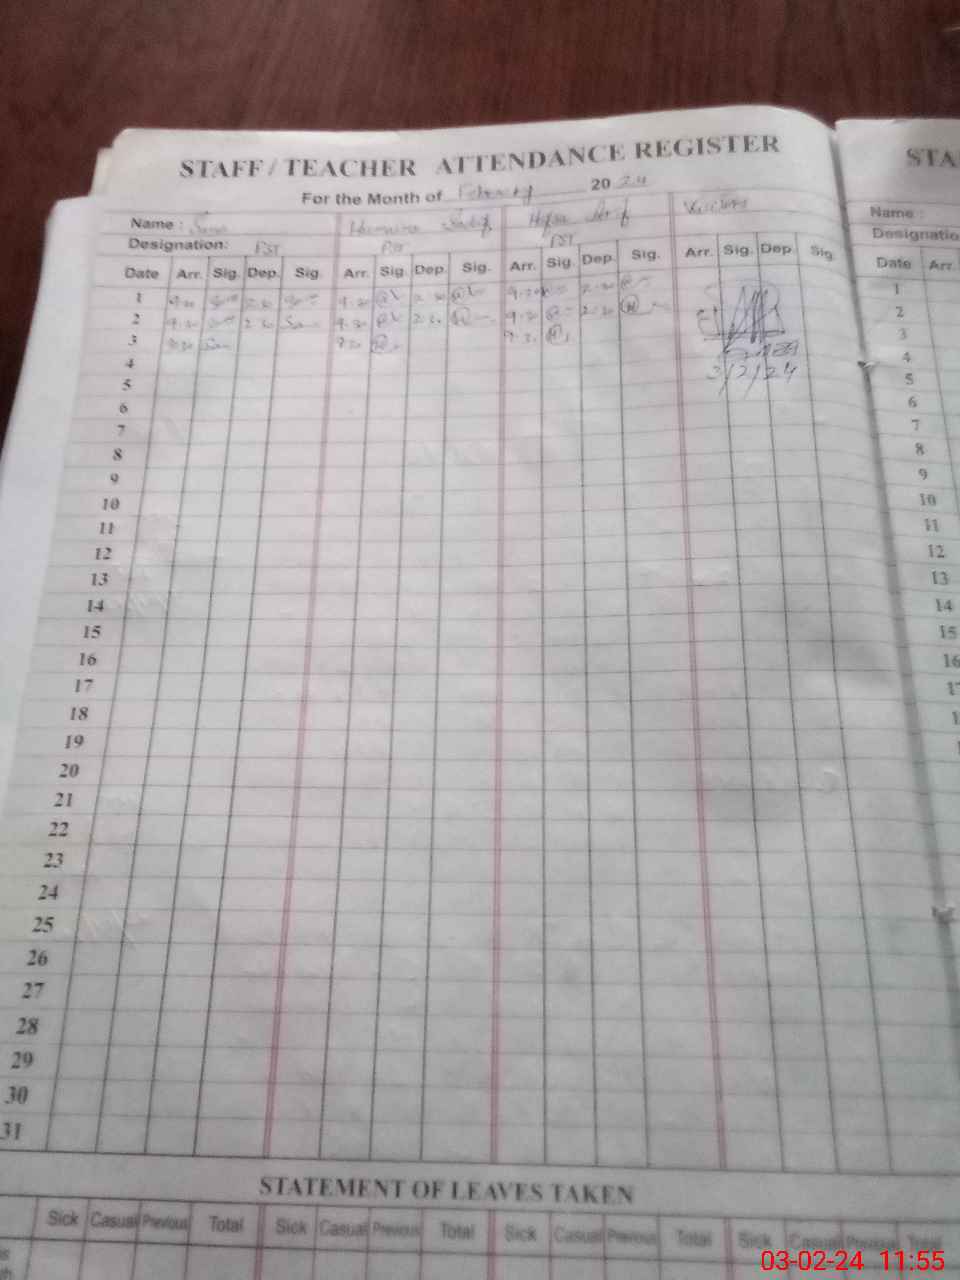 STAFF / TEACHER ATTENDANCE REGISTER
STA
For the Month of February 2024
Name : Sana
Name :
Designation: PST PST PST
Designatio
Date Arr. Sig. Dep. Sig. Arr. Sig. Dep. Sig. Arr. Sig. Dep. Sig. Arr. Sig. Dep. Sig.
Date Arr.
1 9.30 2.30 9.30 2.30 9.30 2.30
1
2 9.30 2.30 9.30 2.30 9.30 2.30
2
3 9.30 9.30 9.30
3
4
4
5
5
6
6
7
7
8
8
9
9
10
10
11
11
12
12
13
13
14
14
15
15
16
16
17
18
19
20
21
22
23
24
25
26
27
28
29
30
31
STATEMENT OF LEAVES TAKEN
Sick Casual Previous Total Sick Casual Previous Total Sick Casual Previous Total Sick Casual Previous Total
03-02-24 11:55